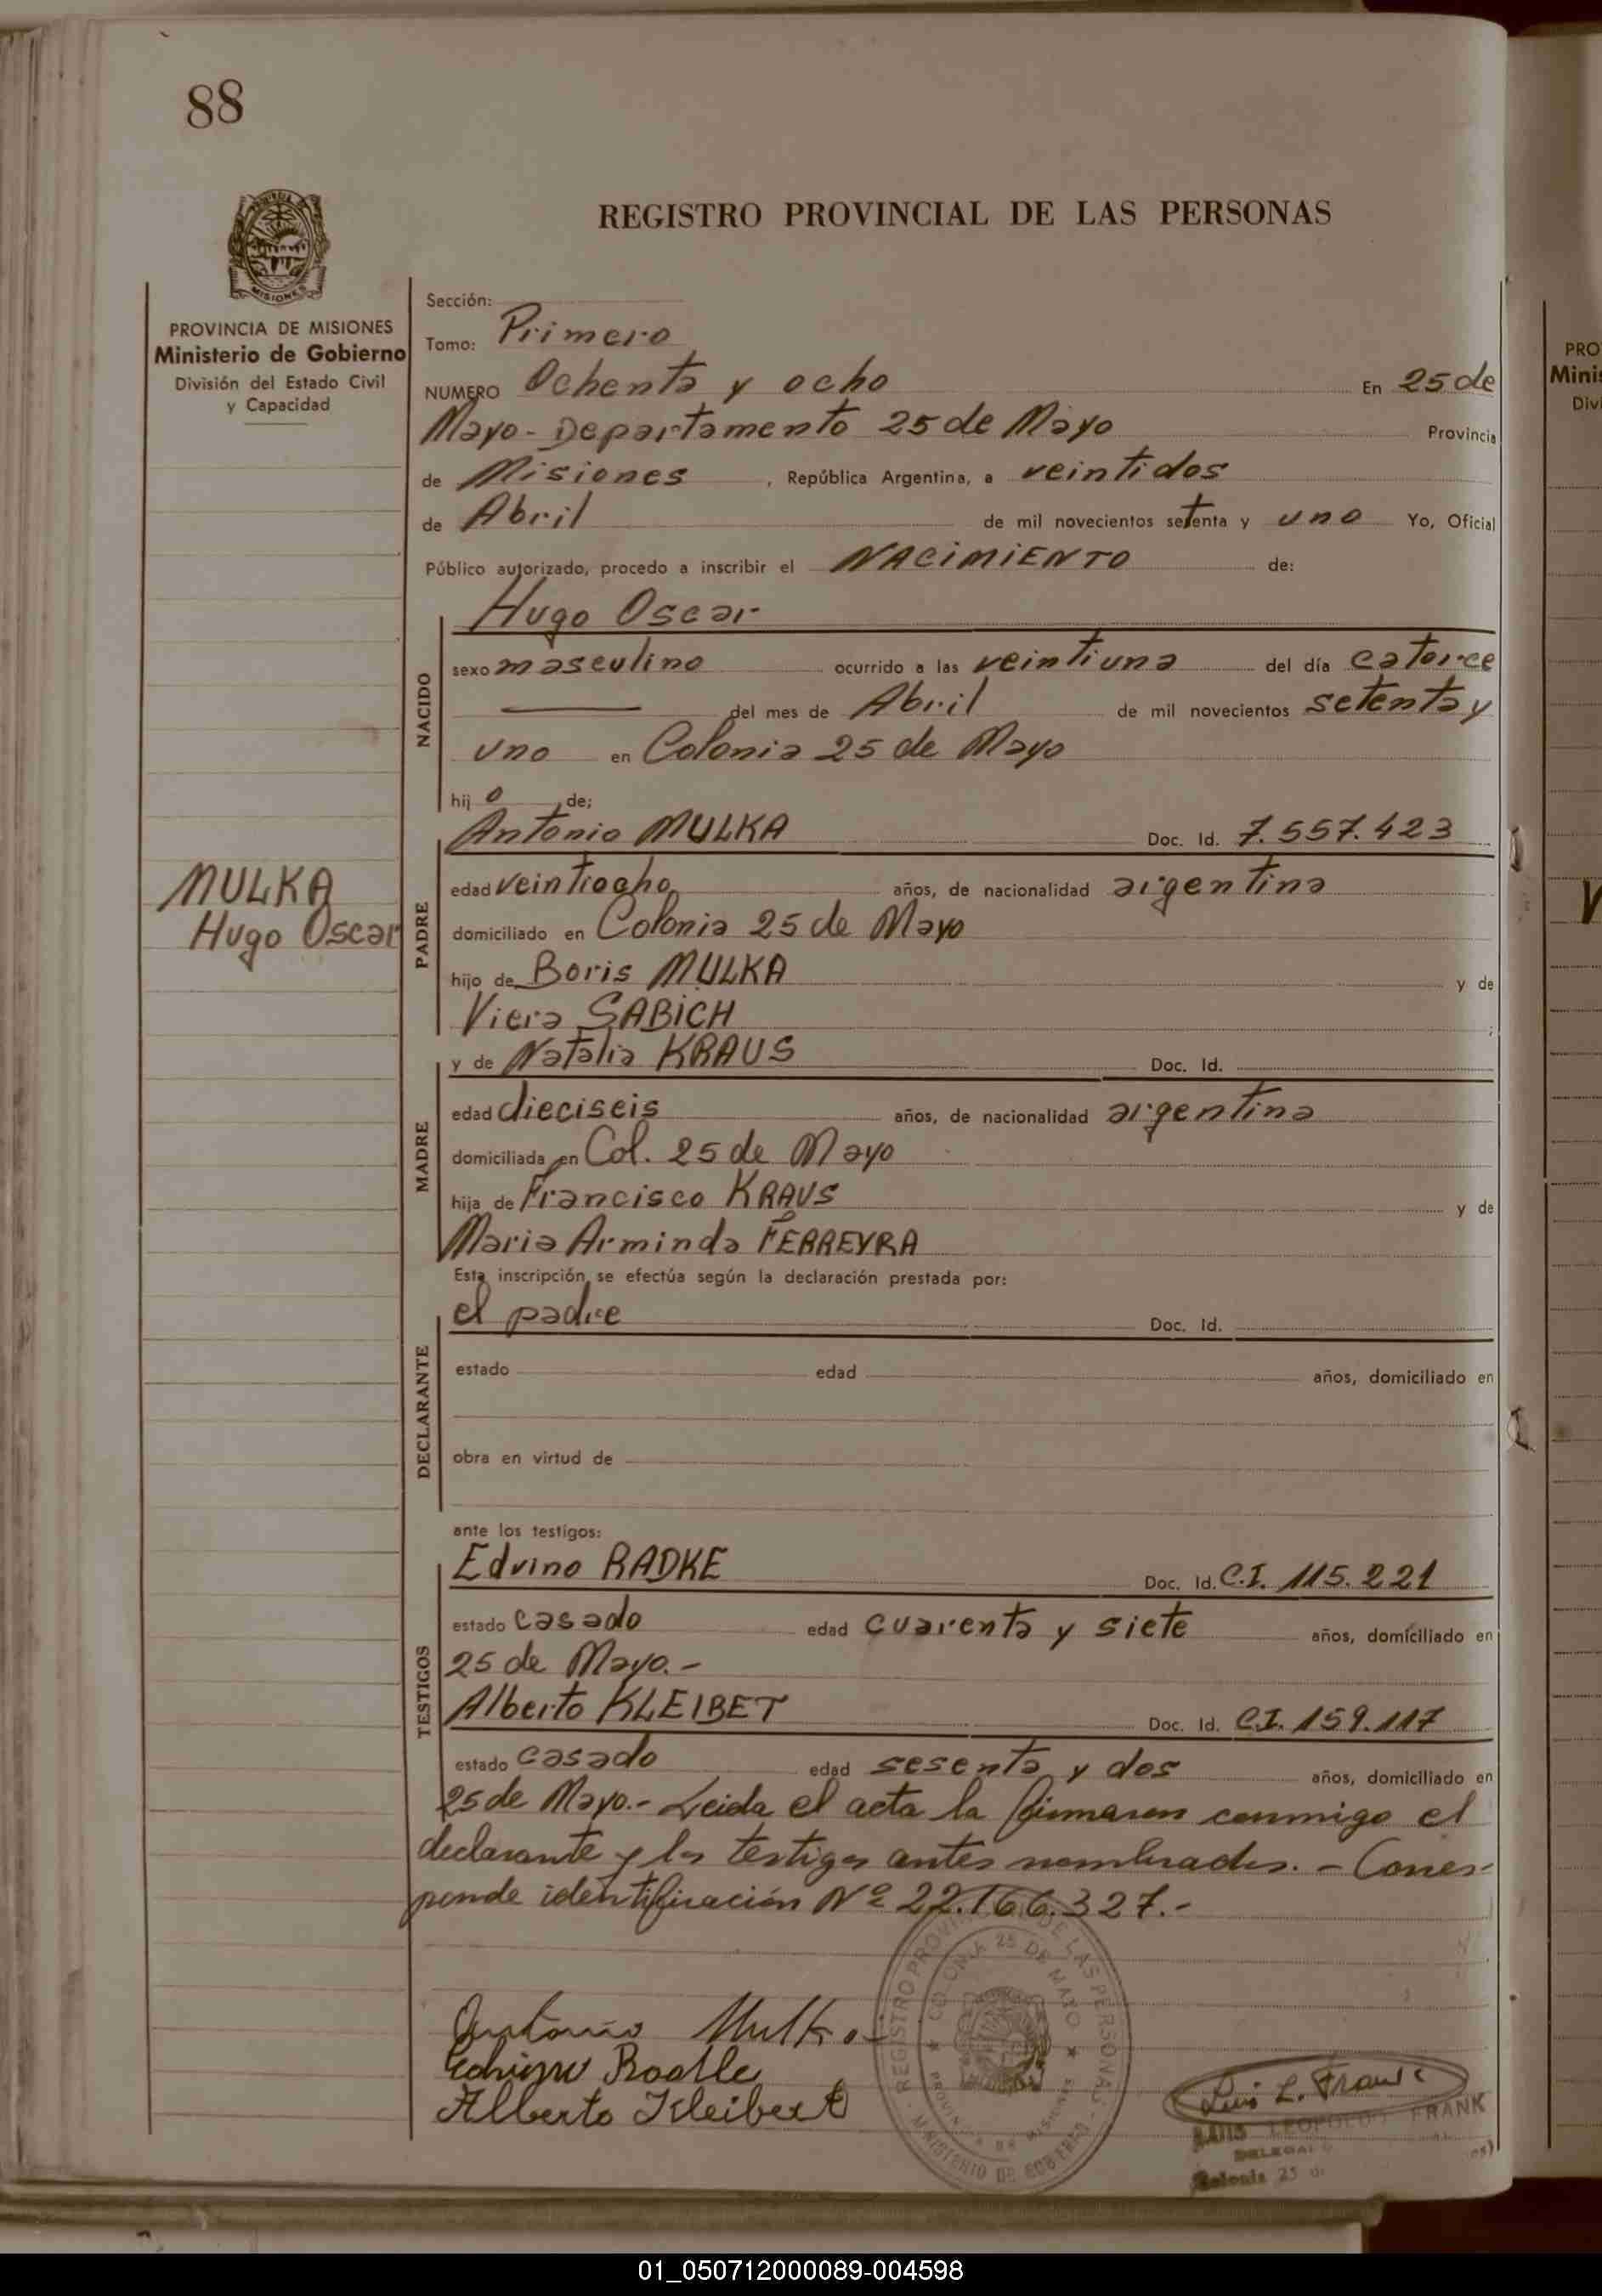 88
REGISTRO PROVINCIAL DE LAS PERSONAS
MISIONES
PROVINCIA DE MISIONES
Ministerio de Gobierno
División del Estado Civil
y Capacidad
Sección:
Tomo: Primero
NUMERO Ochenta y ocho En 25 de
Mayo - Departamento 25 de Mayo Provincia
de Misiones, República Argentina, a veintidos
de Abril de mil novecientos setenta y uno Yo, Oficial
Público autorizado, procedo a inscribir el NACIMIENTO de:
Hugo Oscar
NACIDO
sexo masculino ocurrido a las veintiuna del día catorce
del mes de Abril de mil novecientos setenta y
uno en Colonia 25 de Mayo
hijo de;
Antonio MULKA Doc. Id. 7.557.423
MULKA
Hugo Oscar
PADRE
edad veintiocho años, de nacionalidad argentina
domiciliado en Colonia 25 de Mayo
hijo de Boris MULKA y de
Viera SABICH ;
y de Natalia KRAUS Doc. Id.
MADRE
edad dieciseis años, de nacionalidad argentina
domiciliada en Col. 25 de Mayo
hija de Francisco KRAUS y de
Maria Arminda FERREYRA
Esta inscripción se efectúa según la declaración prestada por:
el padre Doc. Id.
DECLARANTE
estado edad años, domiciliado en
obra en virtud de
ante los testigos:
Edvino RADKE Doc. Id. C.I. 115.221
TESTIGOS
estado casado edad cuarenta y siete años, domiciliado en
25 de Mayo.-
Alberto KLEIBET Doc. Id. C.I. 159.117
estado casado edad sesenta y dos años, domiciliado en
25 de Mayo.- Leida el acta la firmaron conmigo el
declarante y los testigos antes nombrados. - Corres-
ponde identificación Nº 22.166.327.-
REGISTRO PROVINCIAL DE LAS PERSONAS - MINISTERIO DE GOBIERNO
COLONIA 25 DE MAYO
PROVINCIA DE MISIONES
Antonio Mulka
Alberto Kleibert
Luis L. Frank
LUIS LEOPOLDO FRANK
Colonia 25 d
PRO
Minis
Div
01_050712000089-004598